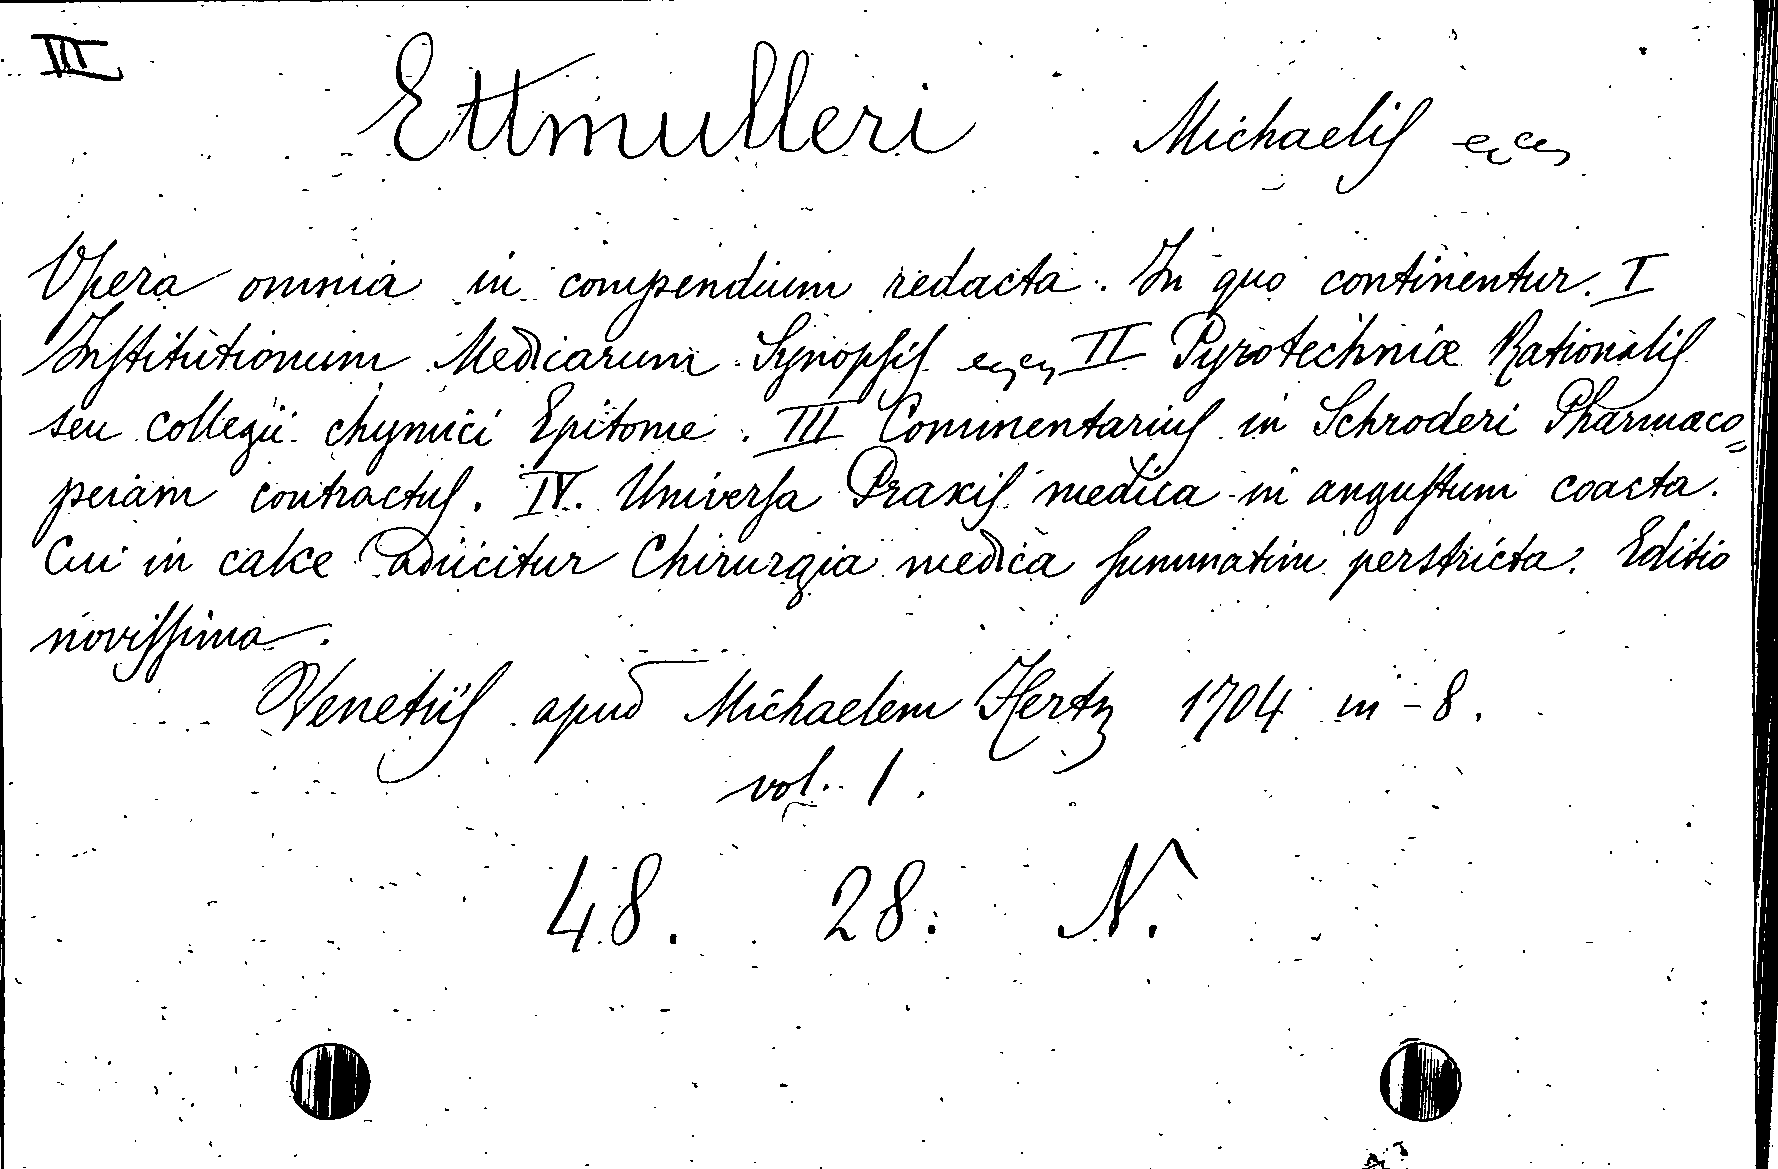 III
Ettmulleri Michaelis ecc
Opera omnia in compendium redacta. In quo continentur. I
Institutionum Medicarum Synopsis ecc II Pyrotechniæ Rationalis
seu collegii chymici Epitome. III Commentarius in Schroderi Pharmaco=
peiam contractus. IV. Universa Praxis medica in angustum coacta.
Cui in calce adiicitur Chirurgia medica summatim perstricta. Editio
novissima.
Venetiis apud Michaelem Hertz 1704 in-8.
vol. 1.
48. 28. N.